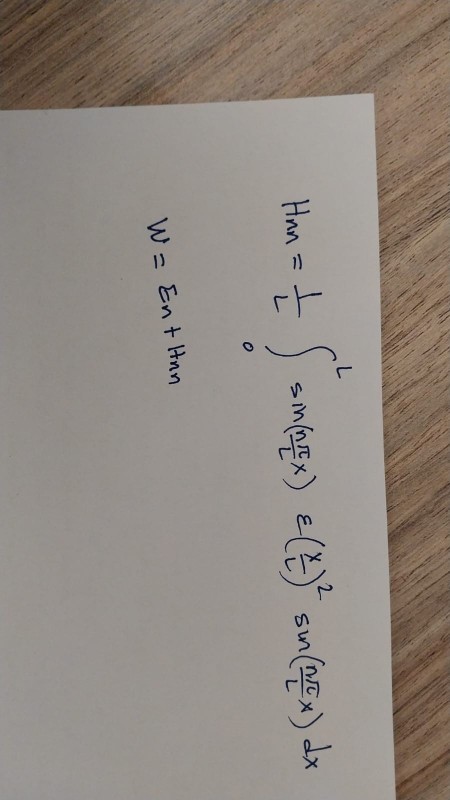 Hnn = 1/L ∫₀ᴸ sin(nπ/L x) ε(x/L)² sin(nπ/L x) dx
W = Σn + Hnn